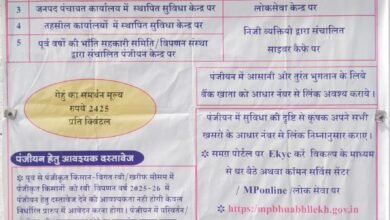 3 जनपद पंचायत कार्यालय में स्थापित सुविधा केन्द्र पर
4 तहसील कार्यालयों में स्थापित सुविधा केन्द्र पर
5 पूर्व वर्षो की भाँति सहकारी समिति/ विपणन संस्था
द्वारा संचालित पंजीयन केन्द्र पर
लोकसेवा केन्द्र पर
निजी व्यक्तियो द्वारा संचालित
साइबर कैफे पर
गेहूं का समर्थन मूल्य
रूपये 2425
प्रति क्विंटल
पंजीयन हेतु आवश्यक दस्तावेज
पूर्व से पंजीकृत किसान-विगत रबी/खरीफ मौसम में
पंजीकृत किसानों को रबी विपणन वर्ष 2025-26 में
पंजीयन हेतु दस्तावेज देने की आवश्यकता नही होगी केवल
निर्धारित प्रारूप में आवेदन करना होगा। पंजीयन में परिवर्तन/
पंजीयन में आसानी और तुरंत भुगतान के लिये
बैंक खाता को आधार नंबर से लिंक अवश्य कराये।
पंजीयन में सुविधा की दृष्टि से कृषक अपने सभी
खसरो के आधार नंबर से लिंक निम्नानुसार कराए।
समग्र पोर्टल पर Ekyc करें विकल्प के माध्यम
से घर बैठे अथवा कॉमन सर्विस सेंटर
/ MPonline /लोक सेवा पर
https://mpbhuabhilekh.gov.in